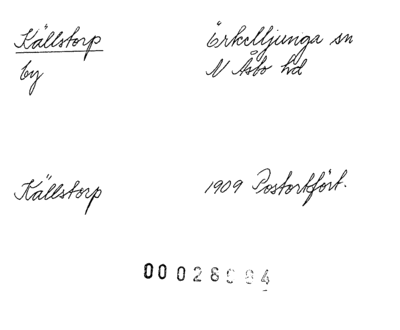 Källstorp Örkelljunga sn
by N Åsbo hd
Källstorp 1909 Postortfört.